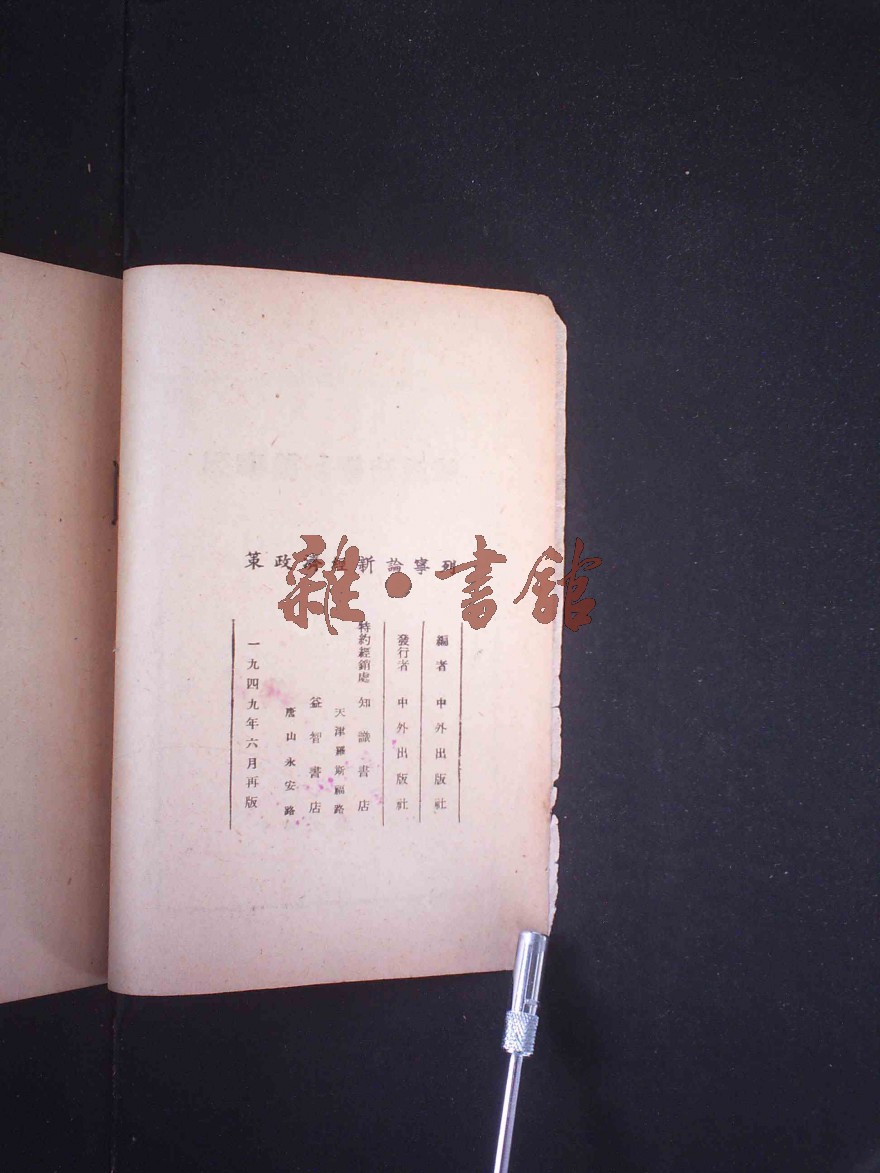 列寧論新經濟政策
編者 中外出版社
發行者 中外出版社
特約經銷處 知識書店
天津羅斯福路
益智書店
唐山永安路
一九四九年六月再版
雜·書館